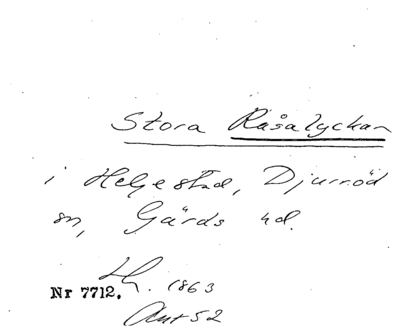 Stora Råsalyckan
i Helgestad, Djurröd
sn, Gärds hd.
Lh. 1863
Nr 7712.
Akt 52